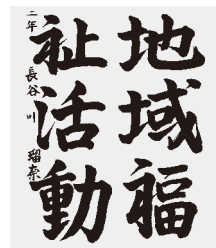 地域福
祉活動
二年 長谷川 瑠奈